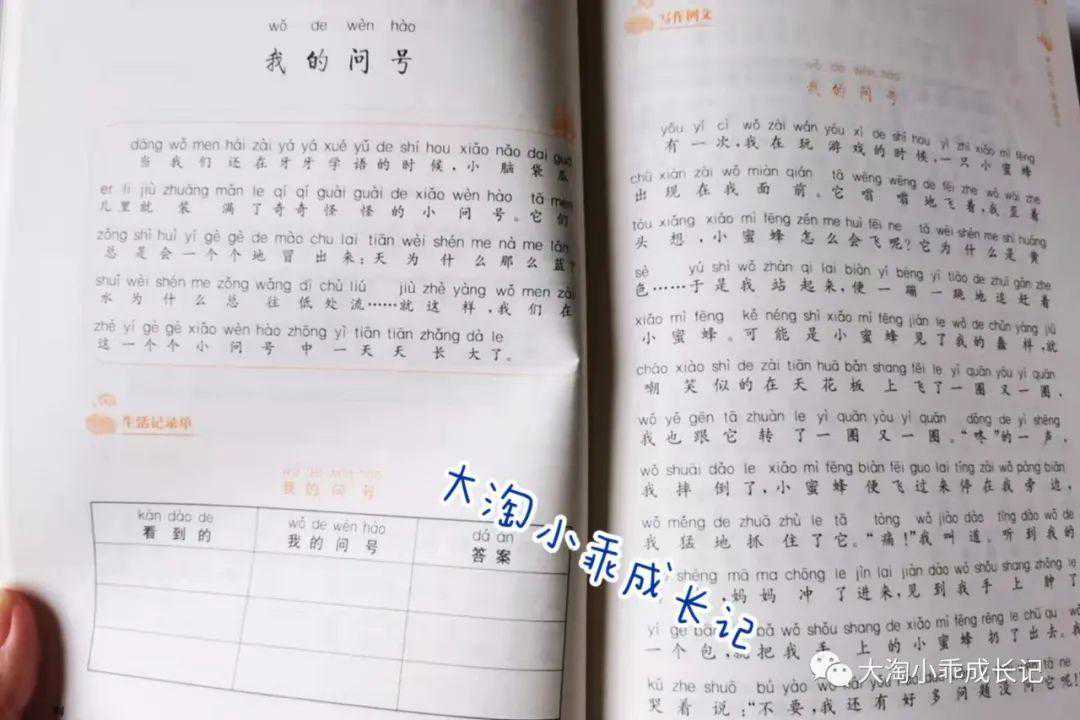 wǒ de wèn hào
我的问号
dāng wǒ men hái zài yá yá xué yǔ de shí hou xiǎo nǎo dai guā
当我们还在牙牙学语的时候，小脑袋瓜
er li jiù zhuāng mǎn le qí qí guài guài de xiǎo wèn hào tā men
儿里就装满了奇奇怪怪的小问号。它们
zǒng shì huì yí gè gè de mào chu lai tiān wèi shén me nà me lán
总是会一个个地冒出来：天为什么那么蓝？
shuǐ wèi shén me zǒng wǎng dī chù liú jiù zhè yàng wǒ men zài
水为什么总往低处流……就这样，我们在
zhè yí gè gè xiǎo wèn hào zhōng yì tiān tiān zhǎng dà le
这一个个小问号中一天天长大了。
生活记录单
我的问号
kàn dào de wǒ de wèn hào dá àn
看到的 我的问号 答案
写作例文
wǒ de wèn hào
我的问号
yǒu yí cì wǒ zài wán yóu xì de shí hou yì zhī xiǎo mì fēng
有一次，我在玩游戏的时候，一只小蜜蜂
chū xiàn zài wǒ miàn qián tā wēng wēng de fēi zhe wǒ wāi zhe
出现在我面前。它嗡嗡地飞着，我歪着
tóu xiǎng xiǎo mì fēng zěn me huì fēi ne tā wèi shén me shì huáng
头想，小蜜蜂怎么会飞呢？它为什么是黄
sè yú shì wǒ zhàn qi lai biàn yí bèng yí tiào de zhuī gǎn zhe
色……于是我站起来，便一蹦一跳地追赶着
xiǎo mì fēng kě néng shì xiǎo mì fēng jiàn le wǒ de chǔn yàng jiù
小蜜蜂。可能是小蜜蜂见了我的蠢样，就
cháo xiào shì de zài tiān huā bǎn shang fēi le yì quān yòu yì quān
嘲笑似的在天花板上飞了一圈又一圈，
wǒ yě gēn tā zhuàn le yì quān yòu yì quān dōng de yì shēng
我也跟它转了一圈又一圈。“咚”的一声，
wǒ shuāi dǎo le xiǎo mì fēng biàn fēi guo lai tíng zài wǒ páng biān
我摔倒了，小蜜蜂便飞过来停在我旁边，
wǒ měng de zhuā zhù le tā tòng wǒ jiào dào tīng dào wǒ de
我猛地抓住了它。“痛！”我叫道。听到我的
shēng mā ma chōng le jìn lai jiàn dào wǒ shǒu shang zhǒng le
，妈妈冲了进来，见到我手上肿了
yí gè bāo bǎ wǒ shǒu shang de xiǎo mì fēng rēng le chū qu wǒ
一个包，就把我手上的小蜜蜂扔了出去。我
kū zhe shuō bú yào wǒ hái yǒu
哭着说：“不要，我还有好多问题没问它呢！
大淘小乖成长记
大淘小乖成长记